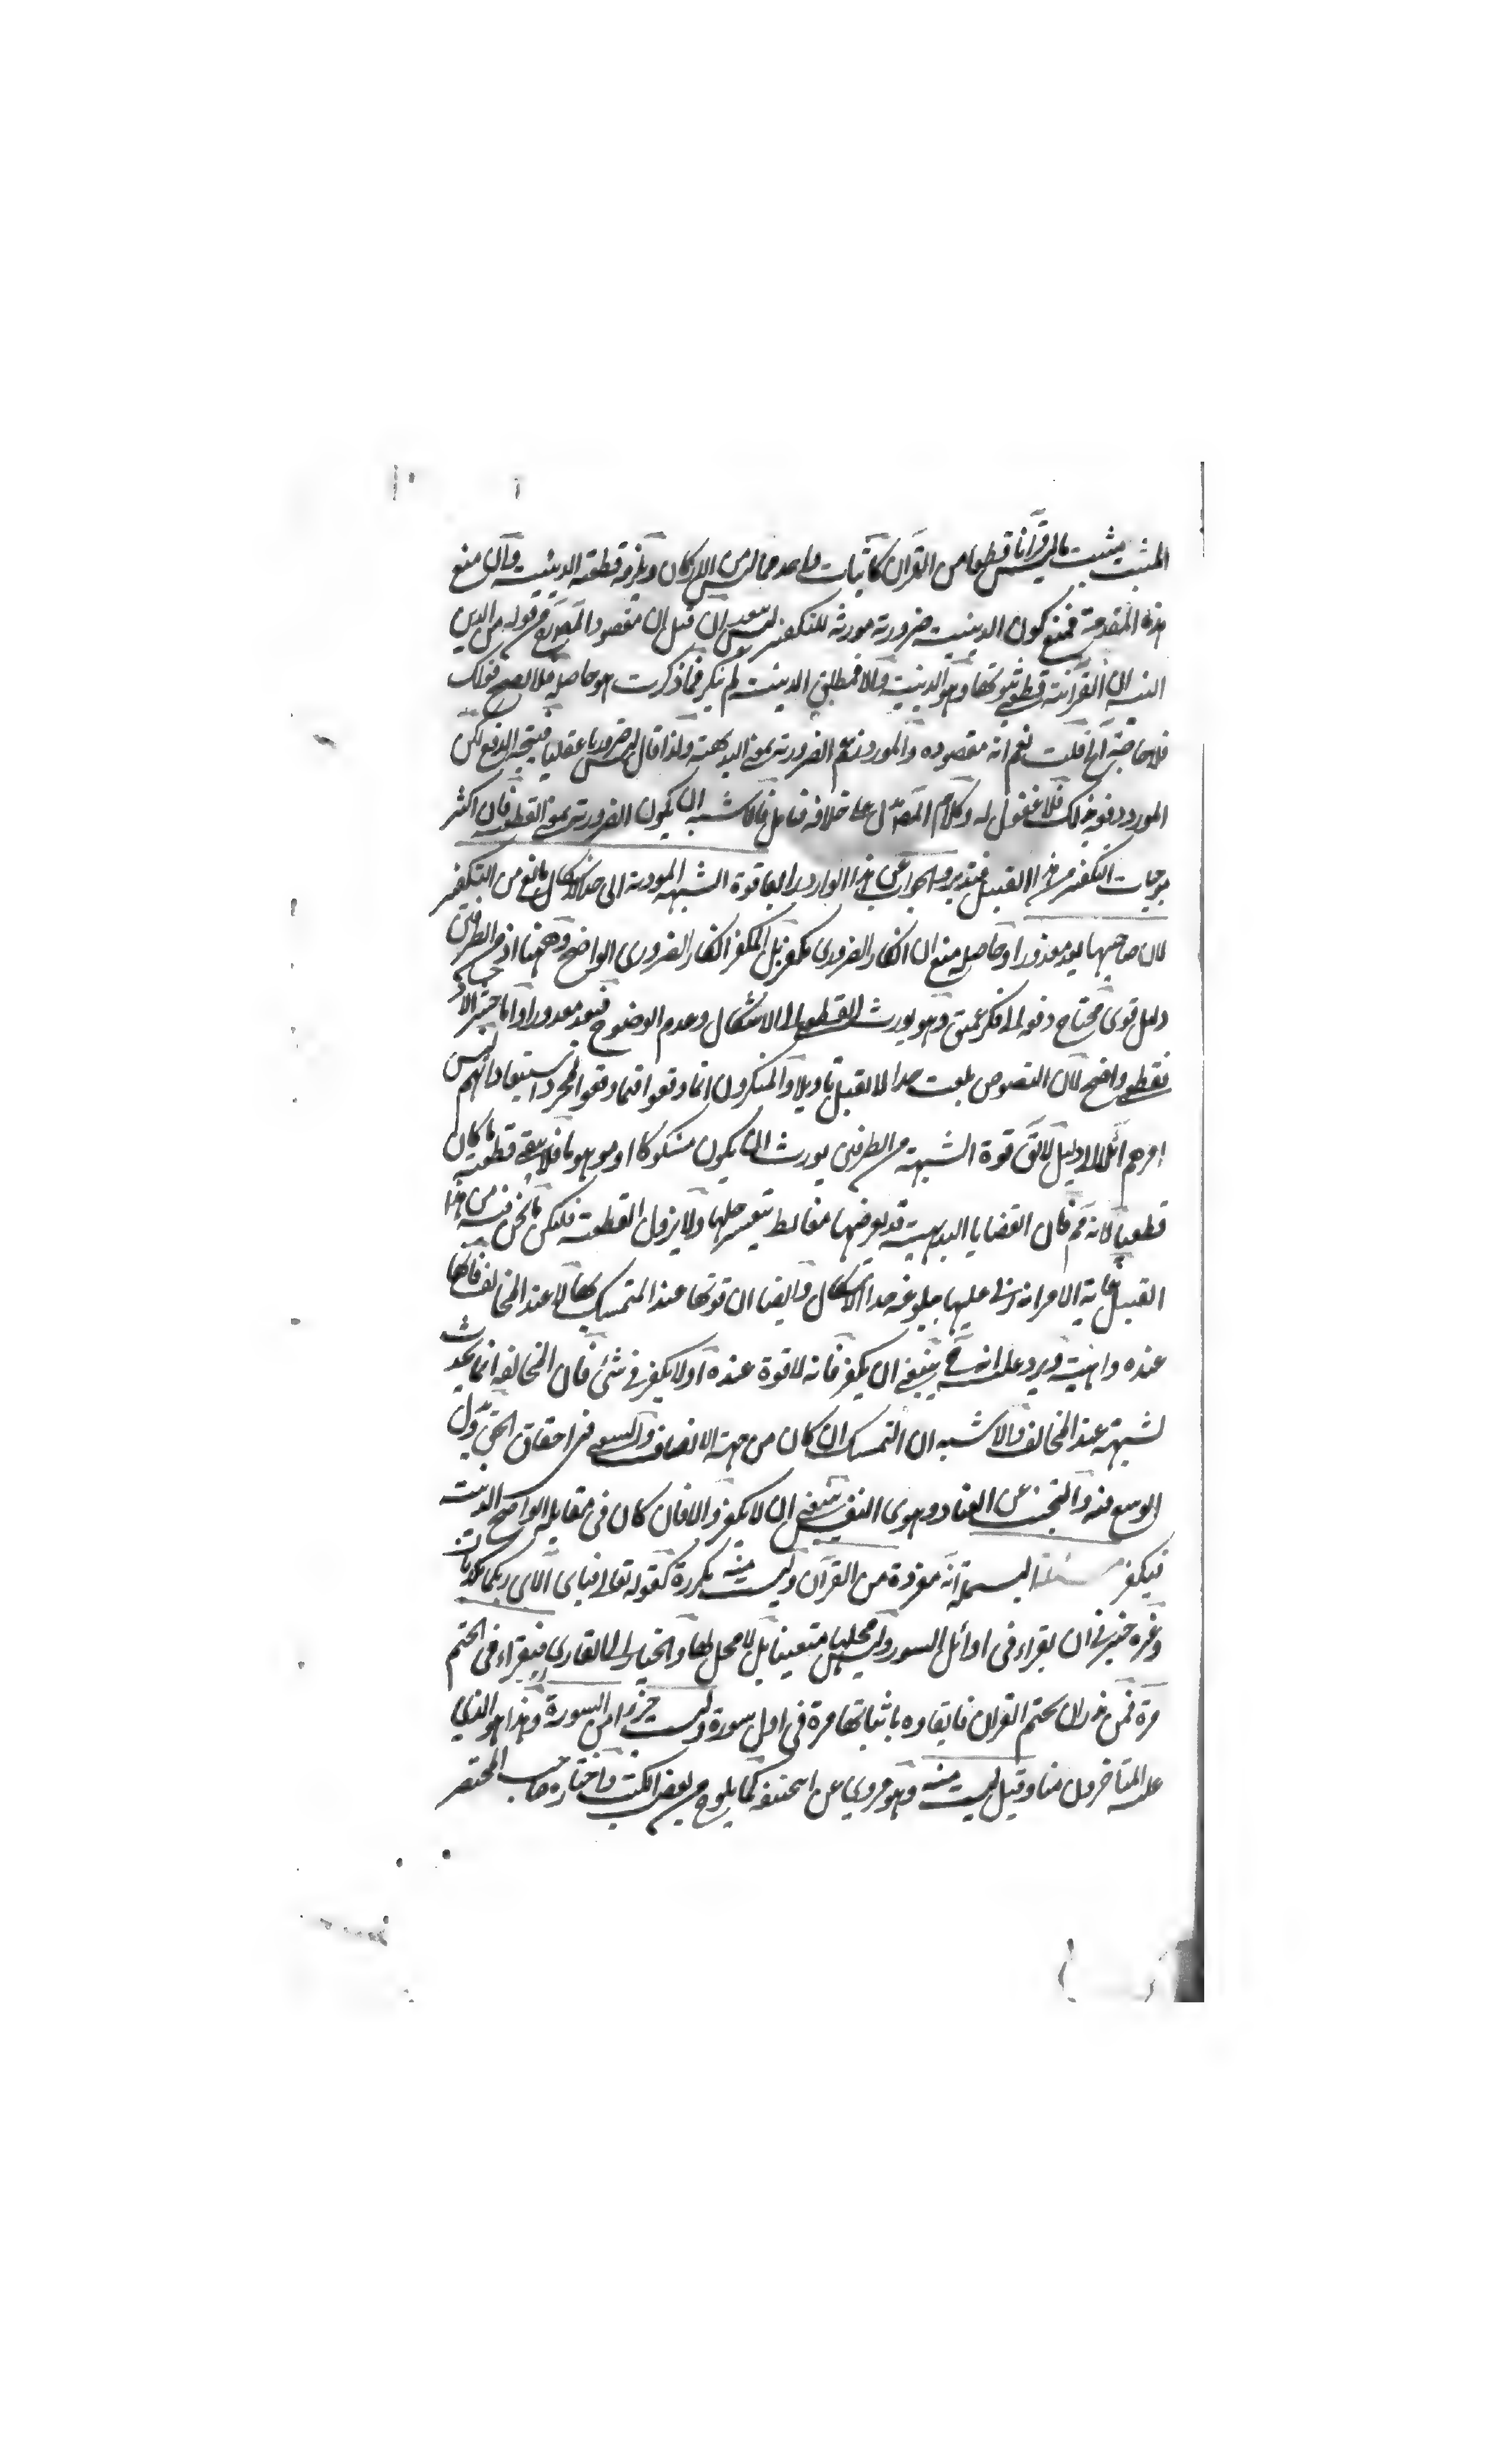 المثبت يثبت ما ليس قرآنا قطعا من القرآن كاثبات واحد مما ليس من الاركان ويلزمه قطعية الدينية وان منع
هذه المقدمة فمنع كون الدينية ضرورية مورثة للتكفير ليس ببعيد ان قيل ان مقصود المص من قوله من الدين
ان القرآنية قطعي ثبوتها وهو الدينية والا فمطلق الدينية لم ينكر فما ذكرت هو حاصله فلا يصح قولك
فلا حاجة الخ قلت نعم انه مقصوده والمورد زعم الضرورة بمعنى البديهة ولذا قال ليس ضروريا عقليا فيتجه الدفع لكن
المورد دفعه بذلك فلا غفول له وكلام المص يدل على خلافه فتامل فالاشبه ان يكون الضرورة بمعنى القطعية فان اكثر
موجبات التكفير من هذا القبيل فتدبر والجواب عن هذا الوارد رابعا قوة الشبهة المودية الى حد الاشكال مانع من التكفير
لان صاحبها يعد معذورا وحاصله منع ان انكار الضروري مكفر بل المكفر انكار الضروري الواضح وههنا اذ من الطرفين
دليل قوي محتاج دفعه الى فكر عميق وهو يورث القطعي الى الاشكال وعدم الوضوح فيعد معذورا واما حشر الاجساد
فقطعي واضح لان النصوص بلغت حدا لا تقبل تاويلا والمنكرون انما وقعوا فيما وقعوا لمجرد استبعاداتهم ليس
امرهم آئلا الى دليل لايق قوة الشبهة من الطرفين يورث ان يكون مشكوكا او موهوما فلا يبقى قطعية ما كان
قطعيا لانه ثم فان القضايا البديهية قد يعرضها مغالط يتعسر حلها ولا يزول القطعية فليكن ما نحن فيه من هذا
القبيل غاية الامر انه زائد عليها ببلوغه حد الاشكال وايضا ان قوتها عند المتمسك بها لا عند المخالف فانها
عنده واهية ويرد عليه انه ح ينبغي ان يكفر فانه لا قوة عنده او لا يكفر في شئ فان المخالفة انما يحدث
لشبهة عند المخالف والاشبه ان التمسك ان كان من جهة الانصاف والسعي في احقاق الحق وبذل
الوسع فيه والتجنب عن العناد وهوى النفس ينبغي ان لا يكفر والا فان كان في مقابلة الواضح الدينية
فيكفر مسئلة البسملة آية مفردة من القرآن وليست منه مكررة كقوله تعالى فباي آلاء ربكما تكذبان
وغيره خير في ان يقراء في اوائل السور وليس محلها متعينا بل لا محل لها والخيار الى القاري فيقراء في الختم
مرة فمن نذر ان يختم القرآن فايفاؤه باثباتها مرة في اول سورة وليست جزء من السورة وهذا هو الذي
عليه المتاخرون منا وقيل ليست منه وهو مروي عن ابي حنيفة كما يلوح من بعض الكتب واختاره صاحب المختصر